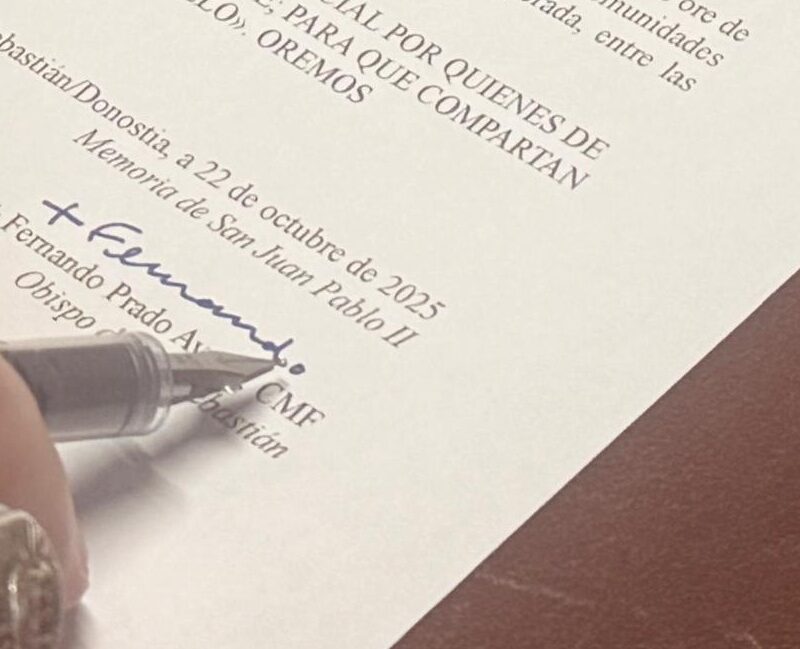 ore de
munidades
rada, entre las
CIAL POR QUIENES DE
E, PARA QUE COMPARTAN
LLO». OREMOS
ebastián/Donostia, a 22 de octubre de 2025
Memoria de San Juan Pablo II
+ Fernando
Fernando Prado Ay CMF
Obispo ebastián